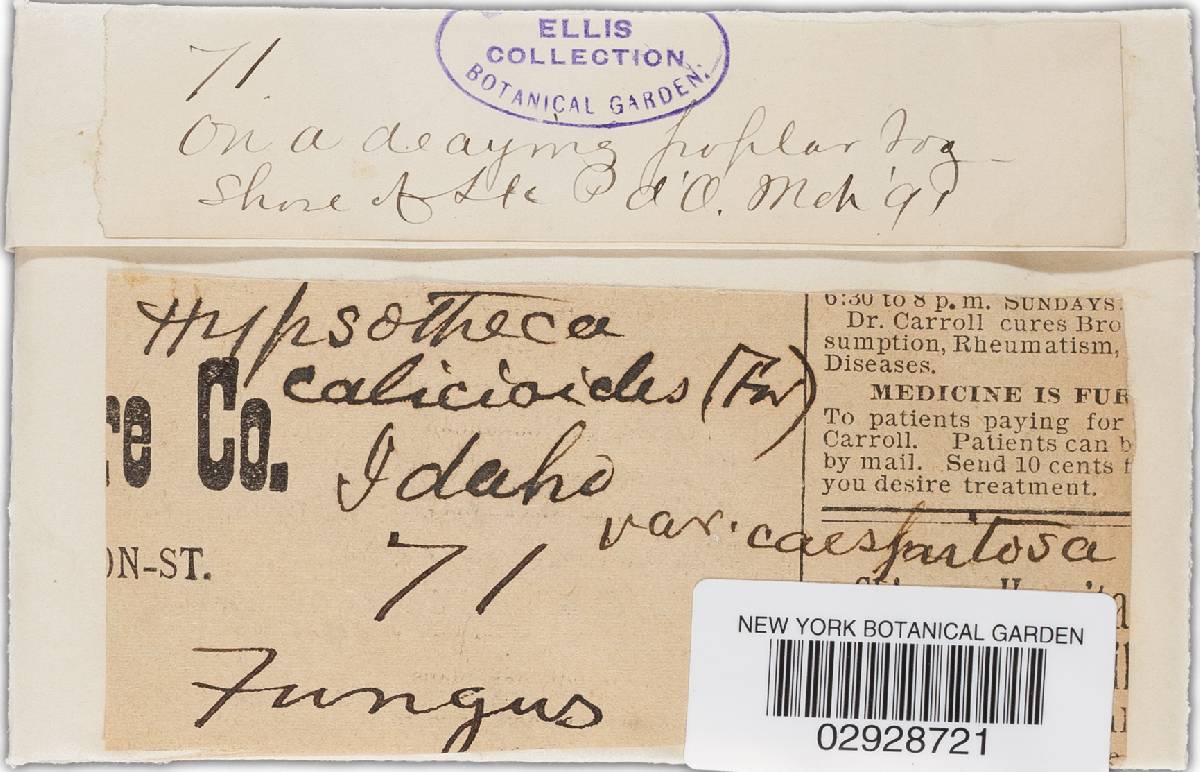 ELLIS
COLLECTION
BOTANICAL GARDEN.
71
On a deaying poplar log
Shore of Lk P d'O. Mch '91
Hypsotheca
calicioides (Fr)
Idaho
71
var. caespitosa
Fungus
re Co.
ON-ST.
6:30 to 8 p. m. SUNDAYS.
Dr. Carroll cures Bro
sumption, Rheumatism,
Diseases.
MEDICINE IS FUR
To patients paying for
Carroll. Patients can b
by mail. Send 10 cents f
you desire treatment.
NEW YORK BOTANICAL GARDEN
02928721